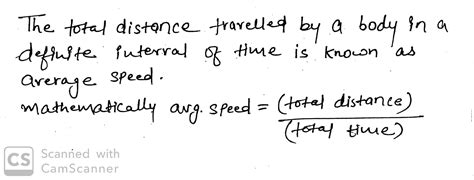 The total distance travelled by a body in a
definite interval of time is known as
average speed.
mathematically avg. speed = (total distance)
(total time)
CS Scanned with
CamScanner